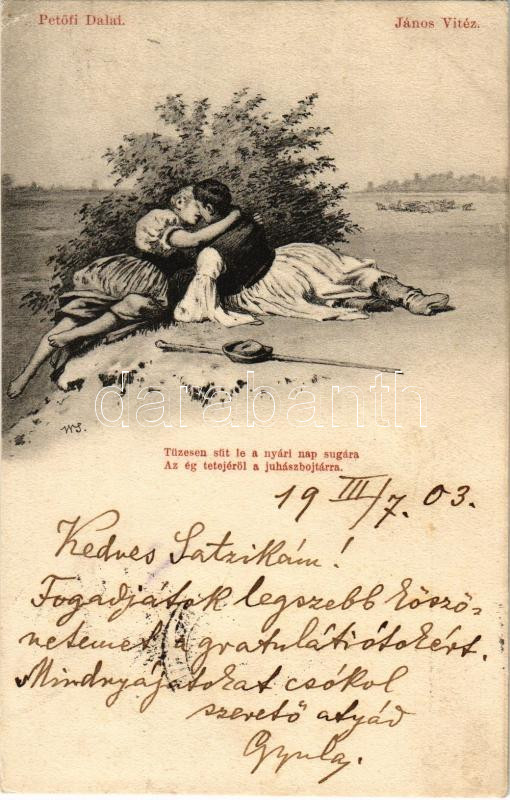 Petőfi Dalai.
János Vitéz.
darabanth
WS.
Tüzesen süt le a nyári nap sugára
Az ég tetejéről a juhászbojtárra.
19 III/7. 03.
Kedves Satzikám!
Fogadjátok legszebb köszö-
netemet a gratulátiótokért.
Mindnyájatokat csókol
szerető atyád
Gyula.